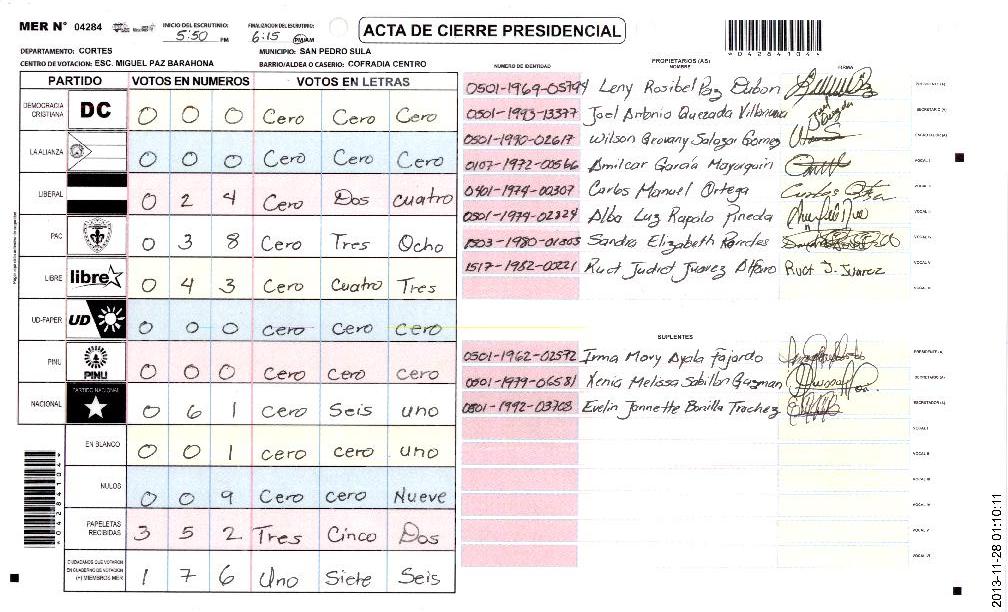 MER N° 04284
INICIO DEL ESCRUTINIO: 5:50 PM
FINALIZACION DEL ESCRUTINIO: 6:15 PM/AM
ACTA DE CIERRE PRESIDENCIAL
042841041
DEPARTAMENTO: CORTES
MUNICIPIO: SAN PEDRO SULA
CENTRO DE VOTACION: ESC. MIGUEL PAZ BARAHONA
BARRIO/ALDEA O CASERIO: COFRADIA CENTRO
PARTIDO VOTOS EN NUMEROS VOTOS EN LETRAS
DEMOCRACIA CRISTIANA DC 0 0 0 Cero Cero Cero
LA ALIANZA 0 0 0 Cero Cero Cero
LIBERAL 0 2 4 Cero Dos cuatro
PAC 0 3 8 Cero Tres Ocho
LIBRE libre 0 4 3 Cero Cuatro Tres
UD-FAPER UD 0 0 0 cero Cero cero
PINU PINU 0 0 0 cero cero cero
NACIONAL PARTIDO NACIONAL 0 6 1 cero Seis uno
EN BLANCO 0 0 1 cero cero uno
NULOS 0 0 9 Cero cero Nueve
PAPELETAS RECIBIDAS 3 5 2 Tres Cinco Dos
CIUDADANOS QUE VOTARON EN CUADERNO DE VOTACION (+) MIEMBROS MER 1 7 6 Uno Siete Seis
NUMERO DE IDENTIDAD PROPIETARIOS (AS) NOMBRE FIRMA
0501-1969-05794 Leny Rosibel Paz Dubon PRESIDENTE(A)
0501-1993-13377 Joel Antonio Quezada Villanueva SECRETARIO(A)
0501-1990-02617 Wilson Geovany Salazar Gomez ESCRUTADOR(A)
0107-1972-00566 Amilcar García Mayorquin VOCAL I
0401-1974-00307 Carlos Manuel Ortega VOCAL II
0501-1979-02324 Alba Luz Rapalo Pineda VOCAL III
1503-1980-01303 Sandra Elizabeth Paredes VOCAL IV
1517-1982-00221 Ruct Judret Juarez Alfaro Ruct J. Juarez VOCAL V
VOCAL VI
SUPLENTES
0501-1962-02572 Irma Mary Ayala Fajardo PRESIDENTE(A)
0901-1979-06581 Xenia Melissa Sabillon Guzman SECRETARIO(A)
0801-1992-03708 Evelin Jannette Bonilla Trochez ESCRUTADOR(A)
VOCAL I
VOCAL II
VOCAL III
VOCAL IV
VOCAL V
VOCAL VI
2013-11-28 01:10:11